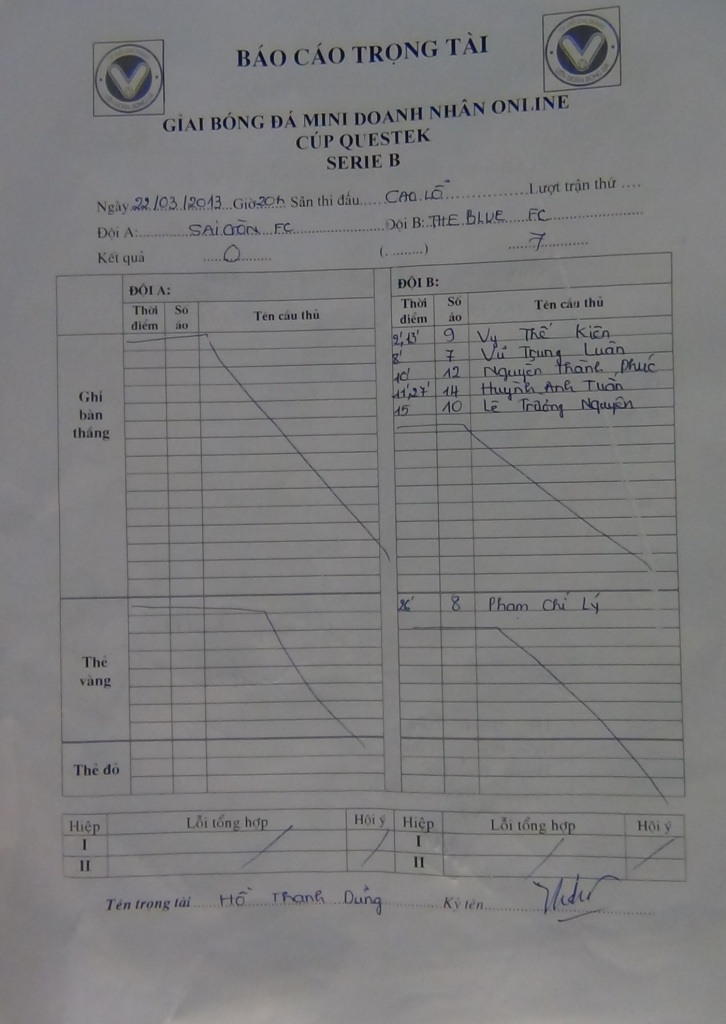 BÁO CÁO TRỌNG TÀI
GIẢI BÓNG ĐÁ MINI DOANH NHÂN ONLINE
CÚP QUESTEK
SERIE B
Ngày 22/03/2013 Giờ 20h Sân thi đấu CAO LỖ Lượt trận thứ
Đội A: SAIGÒN FC Đội B: THE BLUE FC
Kết quả 0 ( ) 7
ĐỘI A: ĐỘI B:
Thời điểm Số áo Tên cầu thủ Thời điểm Số áo Tên cầu thủ
Ghi bàn thắng
2', 13' 9 Vy Thế Kiên
8' 7 Vũ Trung Luân
10' 12 Nguyễn Thành Phúc
11', 27' 14 Huỳnh Anh Tuấn
15 10 Lê Trường Nguyên
Thẻ vàng
26' 8 Phạm Chí Lý
Thẻ đỏ
Hiệp Lỗi tổng hợp Hội ý Hiệp Lỗi tổng hợp Hội ý
I I
II II
Tên trọng tài Hồ Thanh Dũng Ký tên